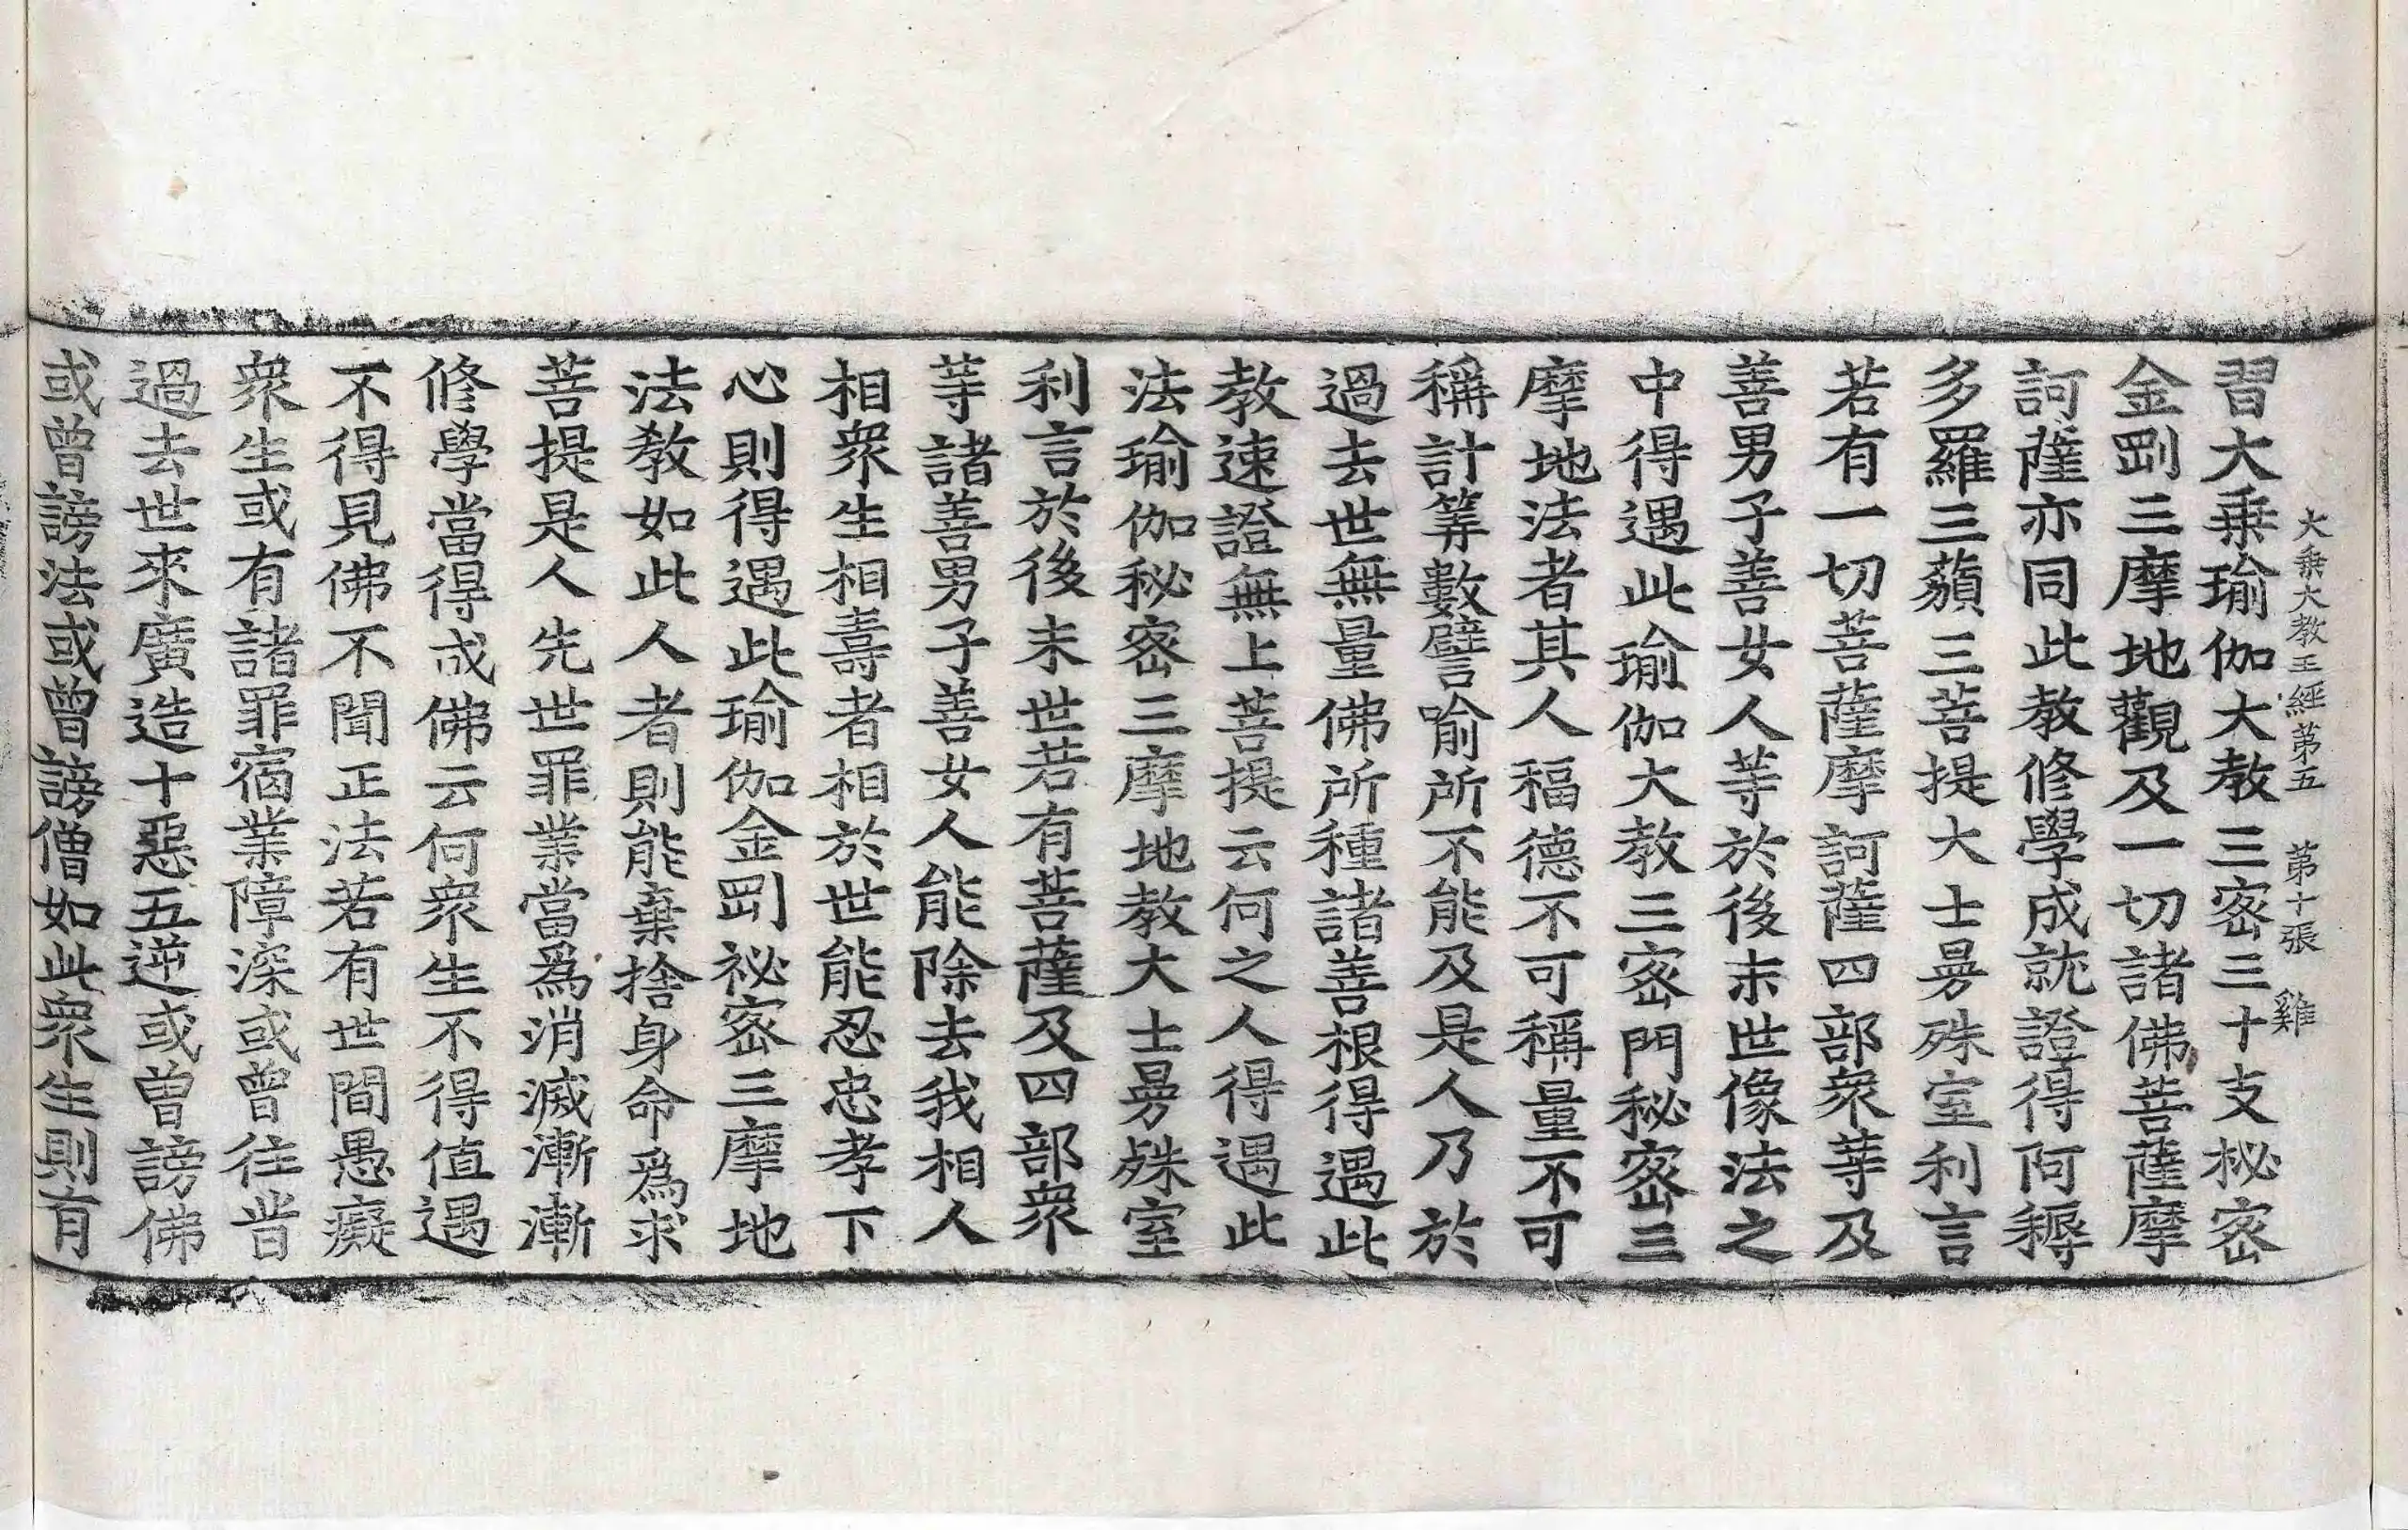 大乗大教王經第五　第十張　雞
習大乗瑜伽大教三密三十支秘密
金剛三摩地觀及一切諸佛菩薩摩
訶薩亦同此教修學成就證得阿耨
多羅三藐三菩提大士曼殊室利言
若有一切菩薩摩訶薩四部衆等及
善男子善女人等於後末世像法之
中得遇此瑜伽大教三密門秘密三
摩地法者其人福德不可稱量不可
稱計筭數譬喻所不能及是人乃於
過去世無量佛所種諸善根得遇此
教速證無上菩提云何之人得遇此
法瑜伽秘密三摩地教大士曼殊室
利言於後末世若有菩薩及四部衆
等諸善男子善女人能除去我相人
相衆生相壽者相於世能忍忠孝下
心則得遇此瑜伽金剛祕密三摩地
法教如此人者則能棄捨身命爲求
菩提是人先世罪業當爲消滅漸漸
修學當得成佛云何衆生不得值遇
不得見佛不聞正法若有世間愚癡
衆生或有諸罪宿業障深或曾往昔
過去世來廣造十惡五逆或曽謗佛
或曾謗法或曾謗僧如此衆生則有